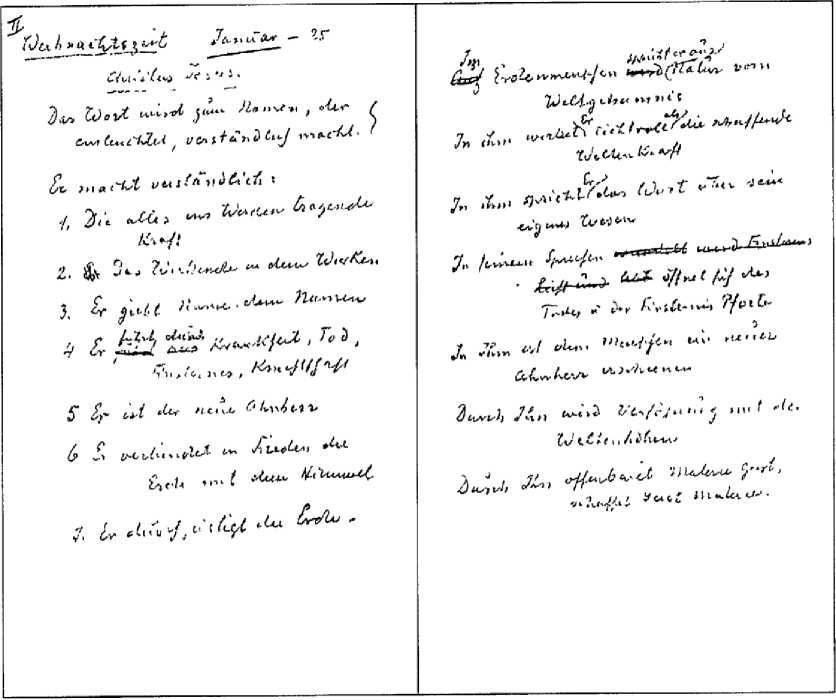 II
Weihnachtszeit Januar - 25
Christus Jesus.
Das Wort wird zum Namen, der
erleuchtet, verständlich macht.
Er macht verständlich:
1. Die alles ins Werden tragende
Kraft
2. Das Wirkende in dem Werken
3. Er giebt Name dem Namen
4 Er führt durch aus Krankheit, Tod,
Finsternis, Knechtschaft
5 Er ist der neue Ahnherr
6 Er verbindet in Frieden die
Erde mit dem Himmel
7. Er durchheiligt die Erde.
Im
Erdenmenschen wird Natur vom
Weltgeheimnis
In ihm wirket Er lichtvoll als die schaffende
Weltenkraft
In ihm spricht Er das Wort über sein
eigenes Wesen
In seinem Sprechen wird Finsternis
öffnet sich des
Todes u der Finsternis Pforte
In Ihm ist dem Menschen ein neuer
Ahnherr erschienen
Durch Ihn wird Versöhnung mit den
Weltenhöhen
Durch Ihn offenbaret Materie Geist,
schaffet Geist Materie.